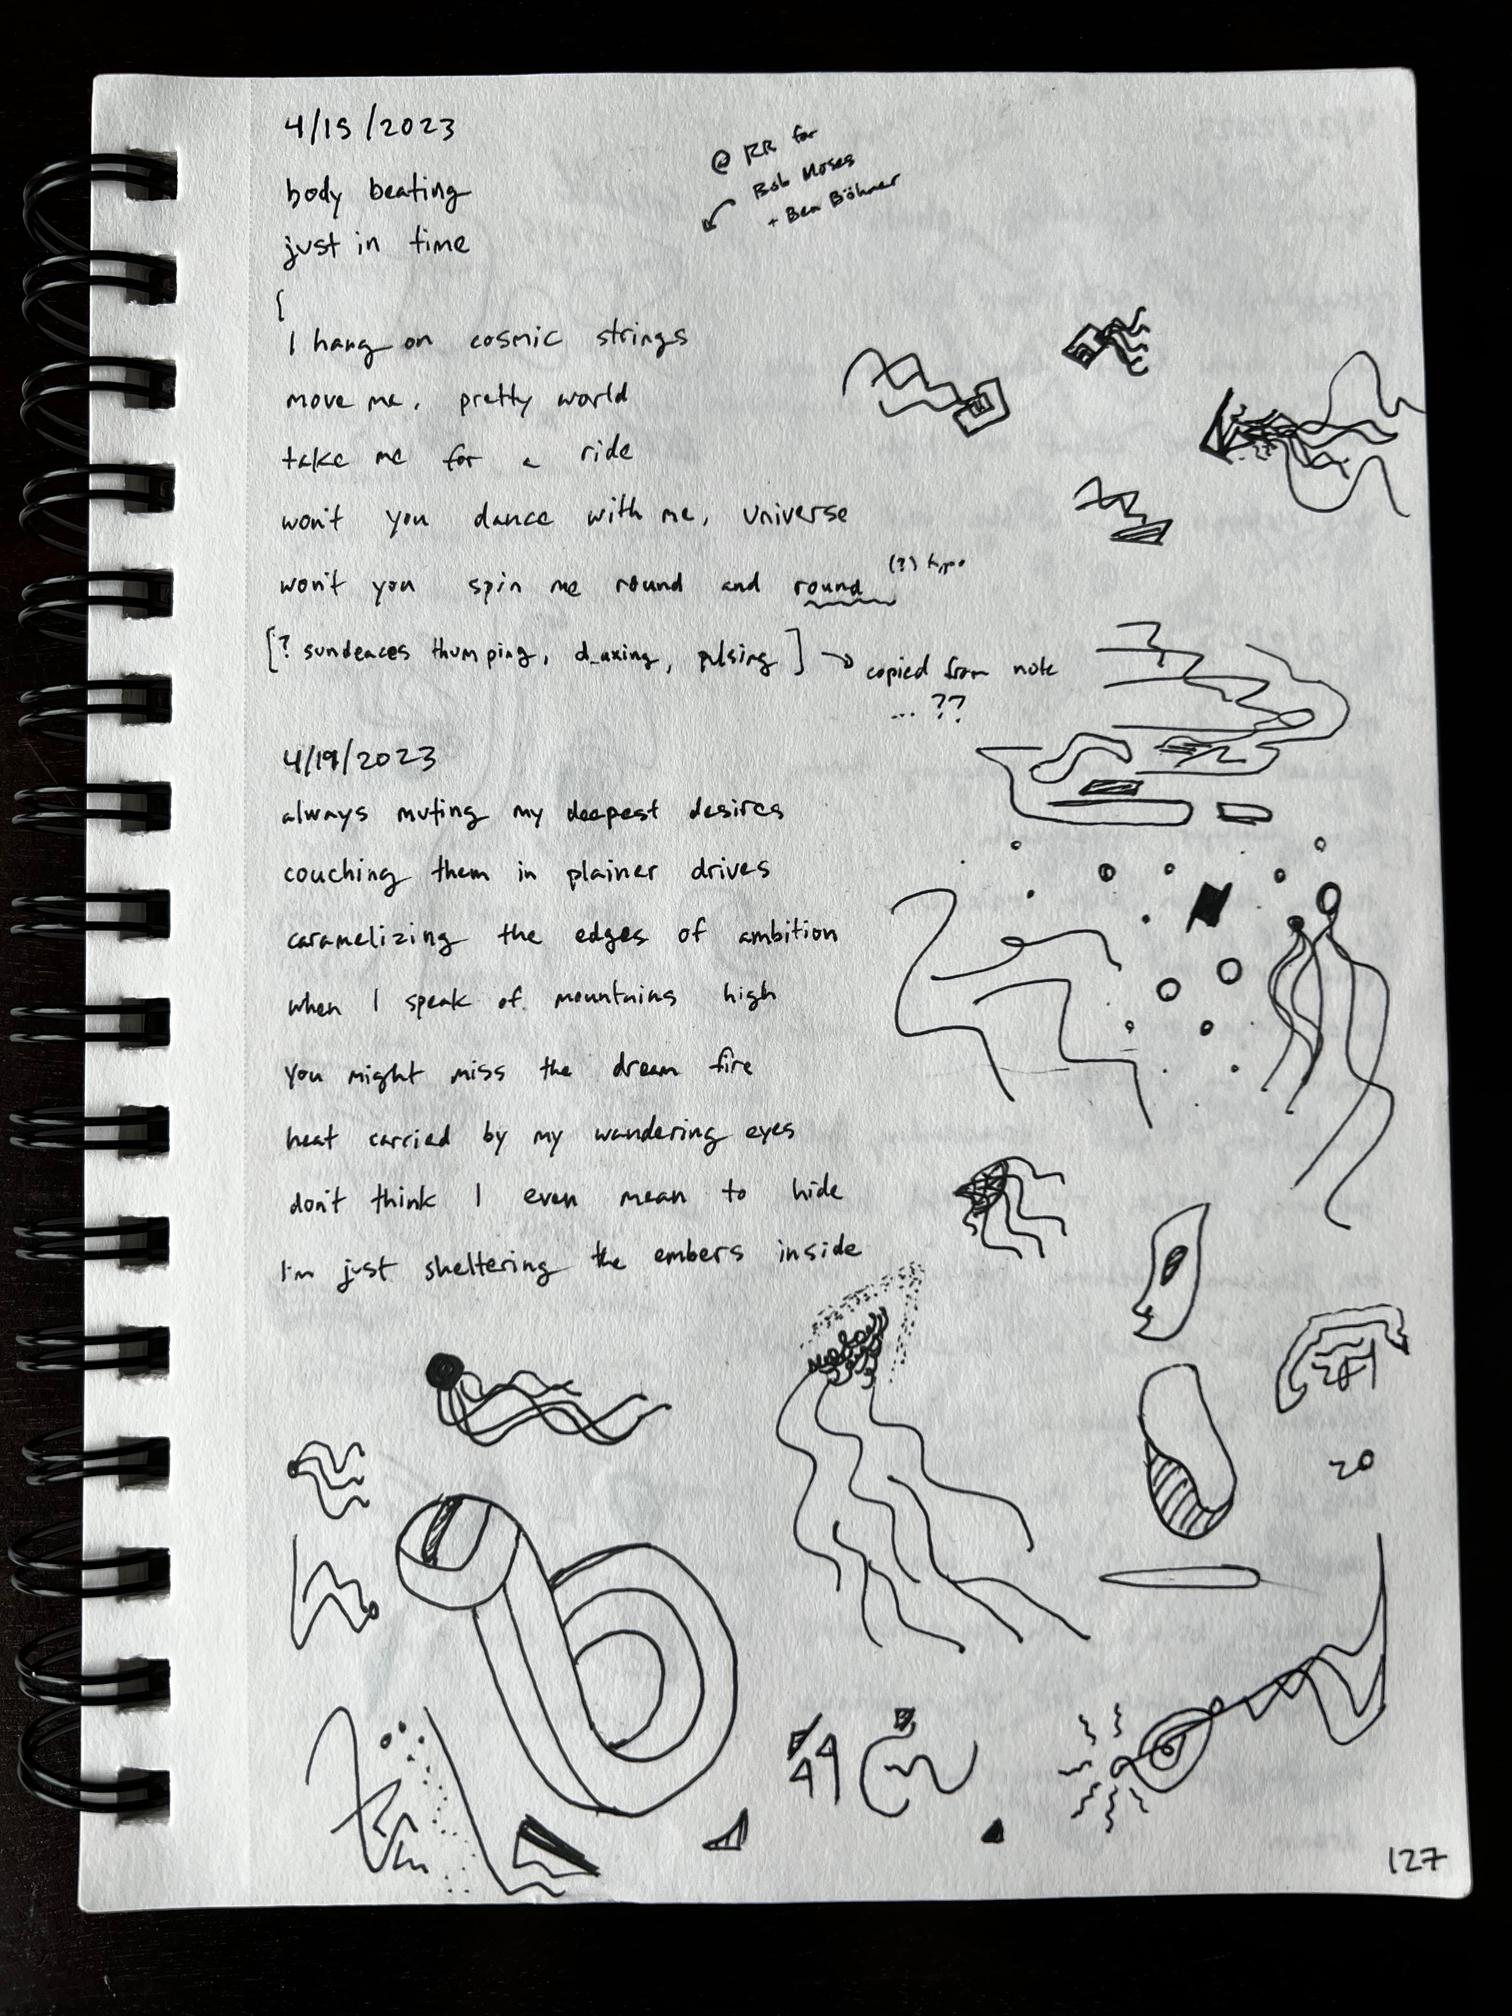 4/15/2023
@ RR for
Bob Moses
+ Ben Böhmer
body beating
just in time
I hang on cosmic strings
move me, pretty world
take me for a ride
won't you dance with me, universe
won't you spin me round and round (?) typo
[? sundeaces thumping, d_uxing, pulsing] → copied from note
... ??
4/19/2023
always muting my deepest desires
couching them in plainer drives
caramelizing the edges of ambition
when I speak of mountains high
you might miss the dream fire
heat carried by my wandering eyes
don't think I even mean to hide
I'm just sheltering the embers inside
127